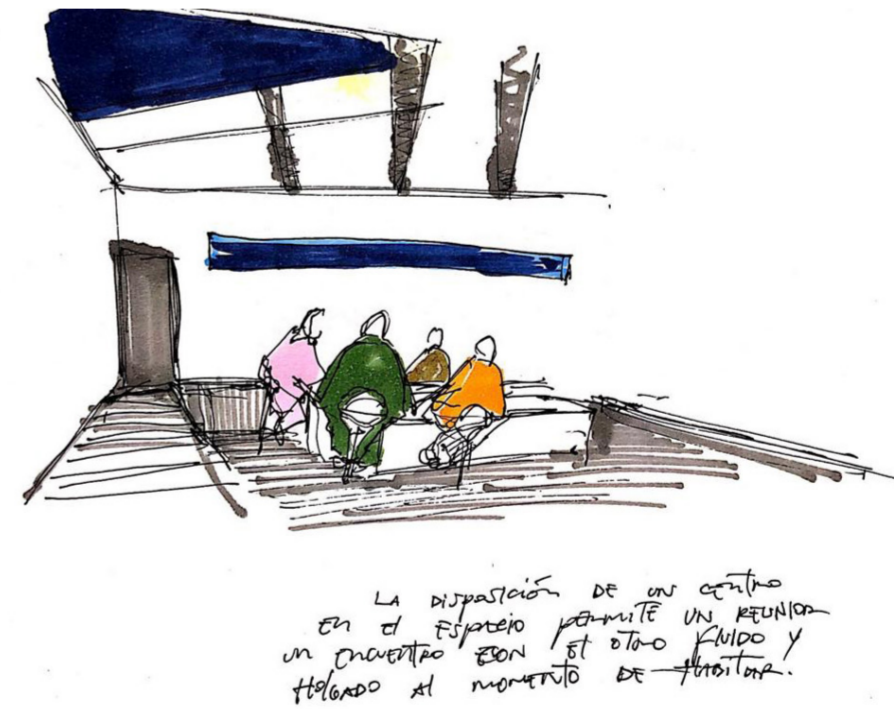 LA DISPOSICIÓN DE UN CENTRO
EN El ESPACIO PERMITE UN REUNIR
UN ENCUENTRO CON El OTRO FLUIDO Y
HOLGADO Al MOMENTO DE HABITAR.